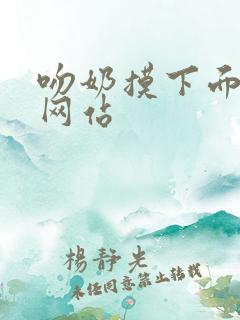 吻奶摸下而
网佔
楊静光
未经同意禁止转载